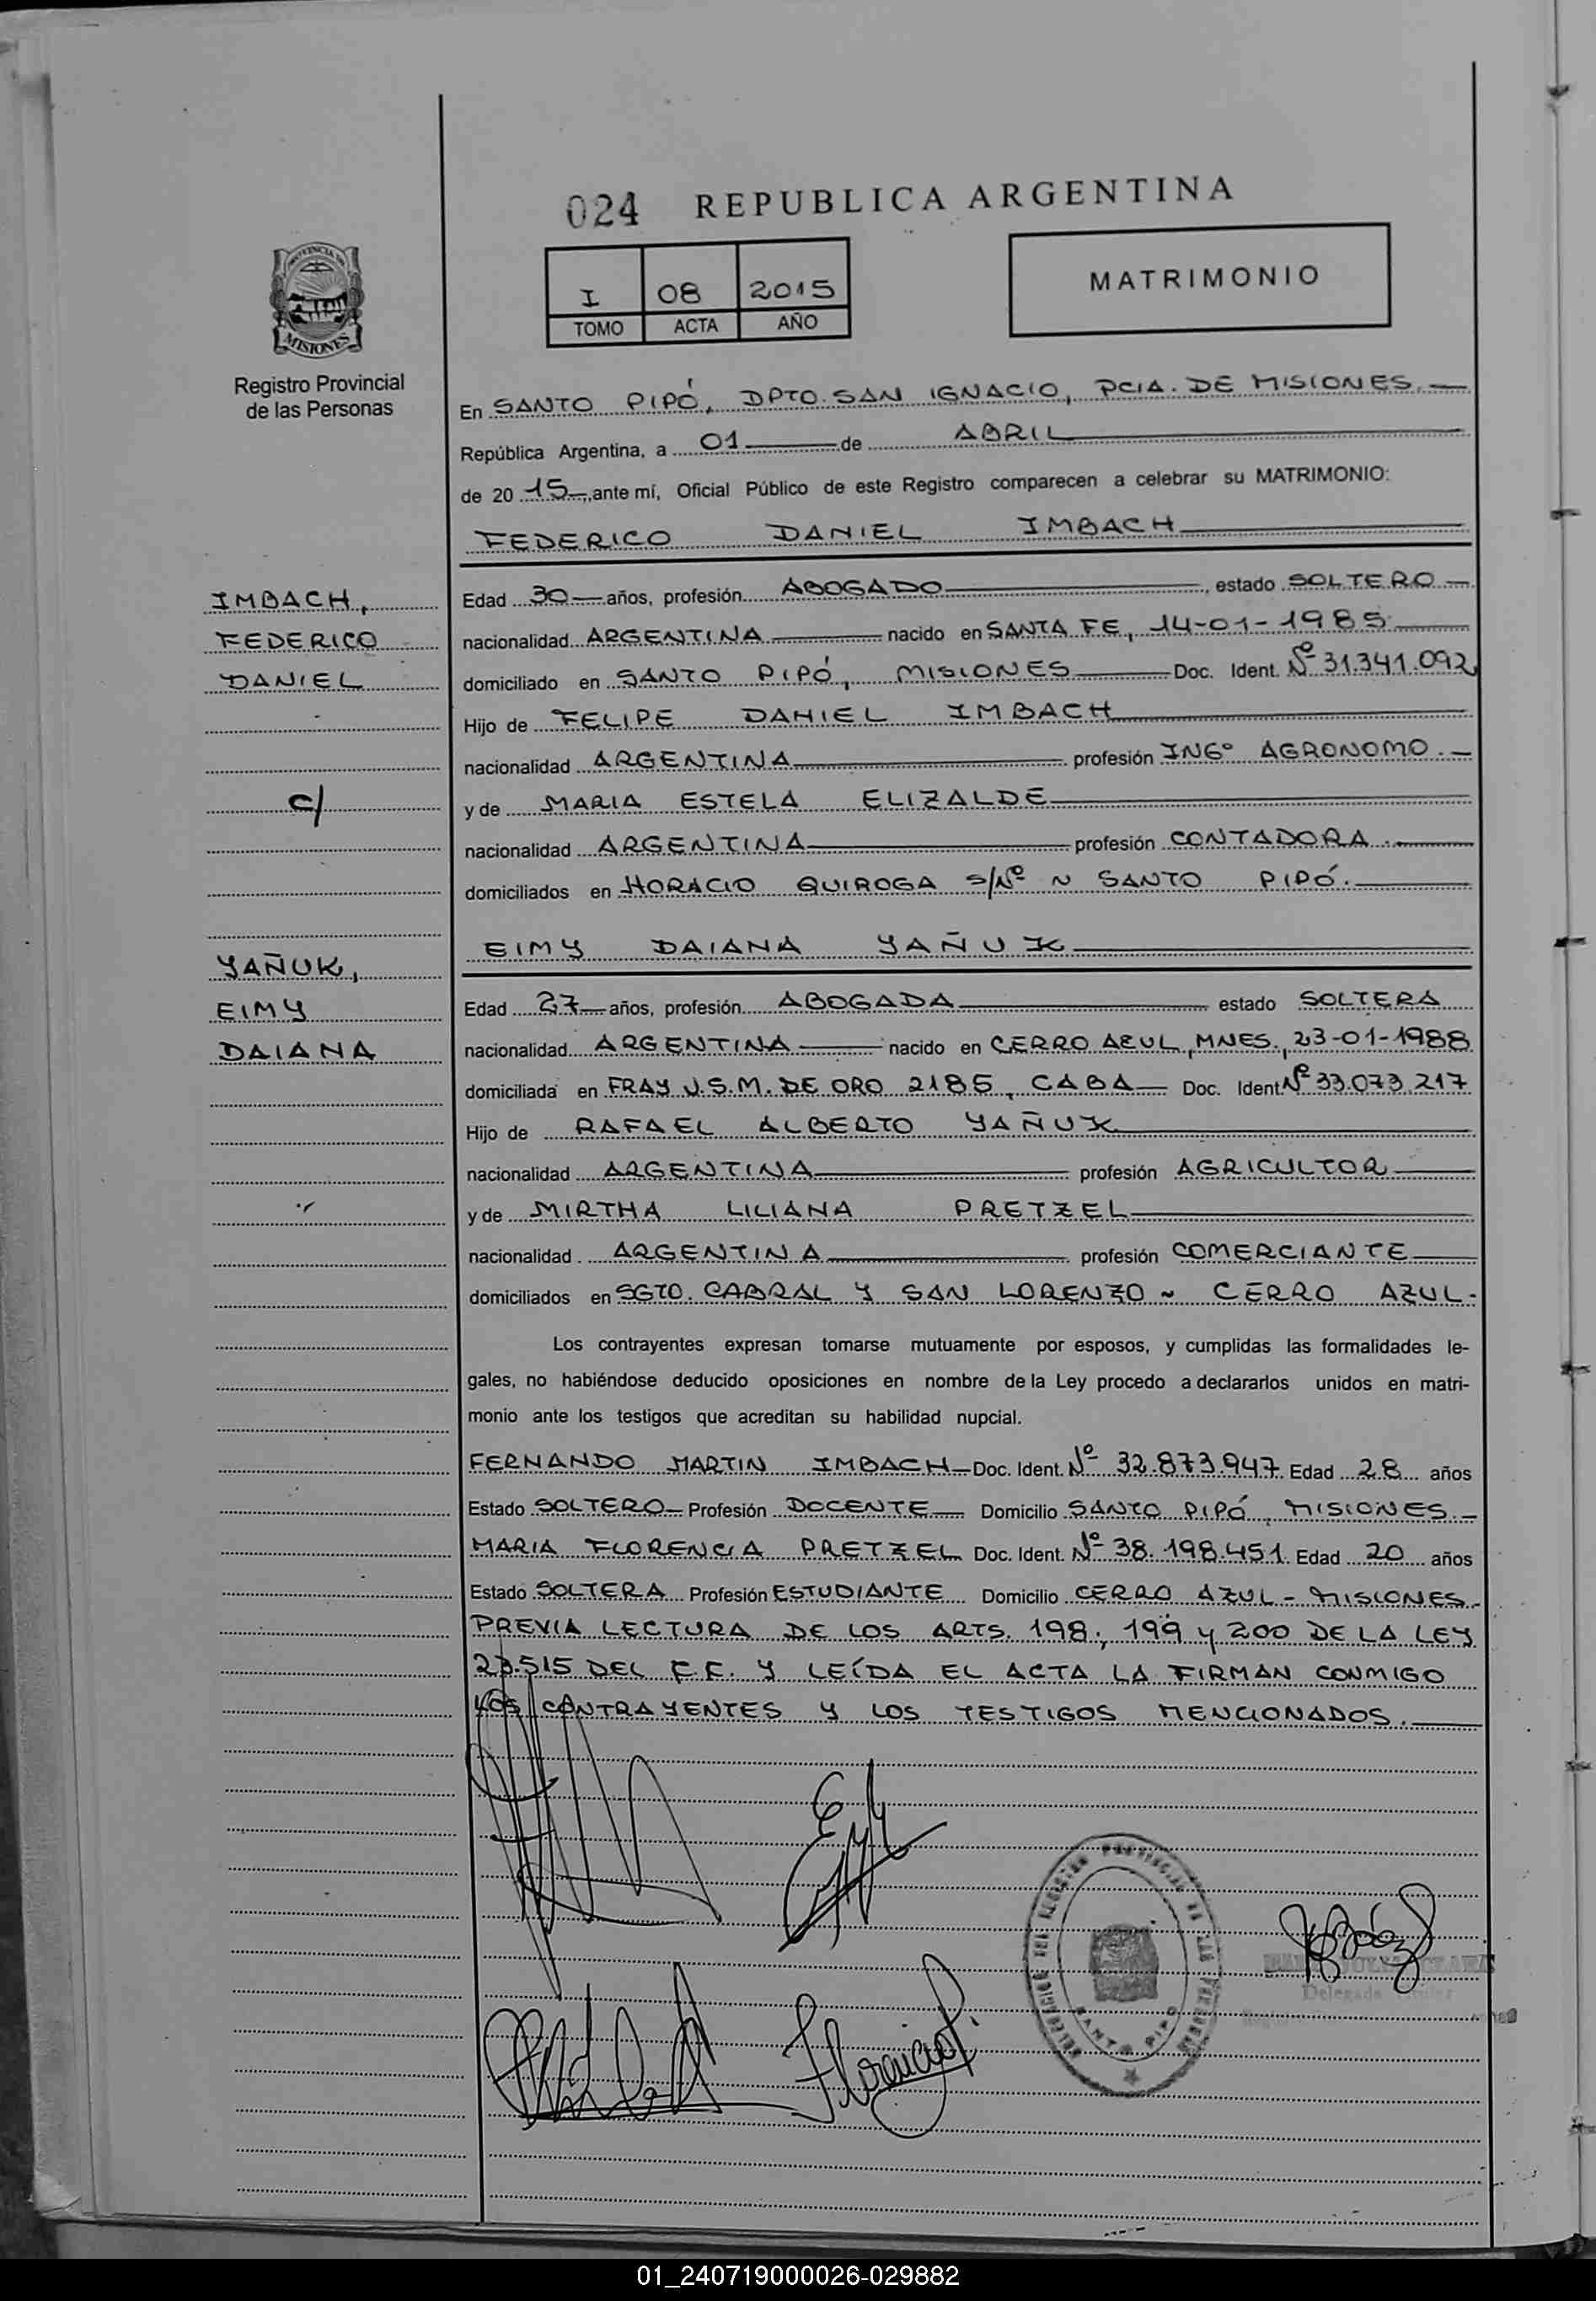 024 REPUBLICA ARGENTINA
PROVINCIA DE
MISIONES
Registro Provincial
de las Personas
I 08 2015
TOMO ACTA AÑO
MATRIMONIO
En SANTO PIPÓ, DPTO. SAN IGNACIO, PCIA. DE MISIONES.
República Argentina, a 01 de ABRIL
de 20 15, ante mí, Oficial Público de este Registro comparecen a celebrar su MATRIMONIO:
FEDERICO DANIEL IMBACH
IMBACH,
FEDERICO
DANIEL
c/
YAÑUK,
EIMY
DAIANA
Edad 30 años, profesión ABOGADO, estado SOLTERO
nacionalidad ARGENTINA nacido en SANTA FE, 14-01-1985
domiciliado en SANTO PIPÓ, MISIONES Doc. Ident. Nº 31.341.092
Hijo de FELIPE DANIEL IMBACH
nacionalidad ARGENTINA profesión INGº AGRONOMO.
y de MARIA ESTELA ELIZALDE
nacionalidad ARGENTINA profesión CONTADORA.
domiciliados en HORACIO QUIROGA S/Nº ~ SANTO PIPÓ.
EIMY DAIANA YAÑUK
Edad 27 años, profesión ABOGADA estado SOLTERA
nacionalidad ARGENTINA nacido en CERRO AZUL, MNES., 23-01-1988
domiciliada en FRAY J.S.M. DE ORO 2185, CABA Doc. Ident. Nº 33.073.217
Hijo de RAFAEL ALBERTO YAÑUK
nacionalidad ARGENTINA profesión AGRICULTOR
y de MIRTHA LILIANA PRETZEL
nacionalidad ARGENTINA profesión COMERCIANTE
domiciliados en SGTO. CABRAL Y SAN LORENZO ~ CERRO AZUL-
Los contrayentes expresan tomarse mutuamente por esposos, y cumplidas las formalidades le-
gales, no habiéndose deducido oposiciones en nombre de la Ley procedo a declararlos unidos en matri-
monio ante los testigos que acreditan su habilidad nupcial.
FERNANDO MARTIN IMBACH Doc. Ident. Nº 32.873.947 Edad 28 años
Estado SOLTERO Profesión DOCENTE Domicilio SANTO PIPÓ, MISIONES.
MARIA FLORENCIA PRETZEL Doc. Ident. Nº 38.198.451 Edad 20 años
Estado SOLTERA Profesión ESTUDIANTE Domicilio CERRO AZUL - MISIONES.
PREVIA LECTURA DE LOS ARTS. 198, 199 Y 200 DE LA LEY
23.515 DEL C.C. Y LEÍDA EL ACTA LA FIRMAN CONMIGO
LOS CONTRAYENTES Y LOS TESTIGOS MENCIONADOS.
SANTO PIPO
Delegada Titular
01_240719000026-029882